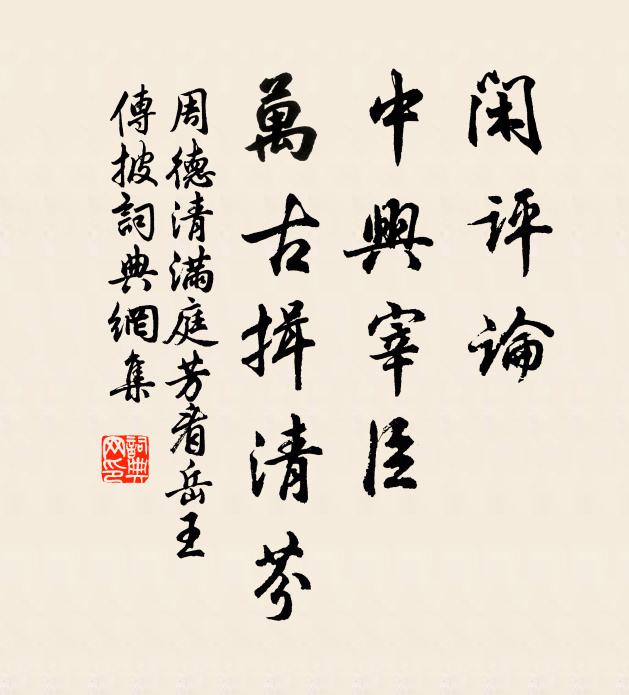 閑評論
中興宰臣
萬古揖清芬
周德清滿庭芳看岳王
傳披詞典網集
詞典网印